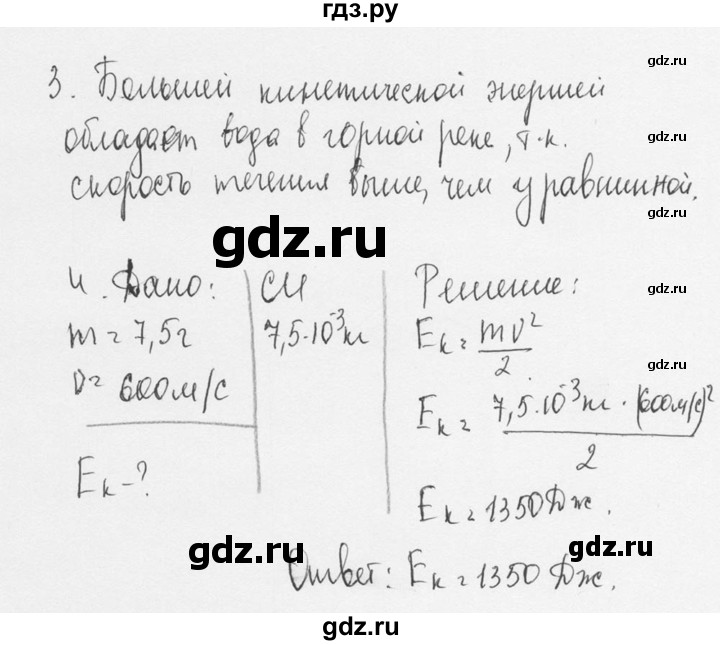 гдз.ру
gdz.ru
3. Большей кинетической энергией
обладает вода в горной реке, т.к.
gdz.ru
скорость течения выше, чем у равнинной.
gdz.ru
gdz.ru
4. Дано: СИ Решение:
gdz.ru
m = 7,5г 7,5·10⁻³кг Eк = mv²/2
v = 600м/с
gdz.ru
Eк = 7,5·10⁻³кг · (600м/с)²/2
gdz.ru
Eк - ?
Eк = 1350Дж.
gdz.ru
gdz.ru
Ответ: Eк = 1350 Дж.
gdz.ru